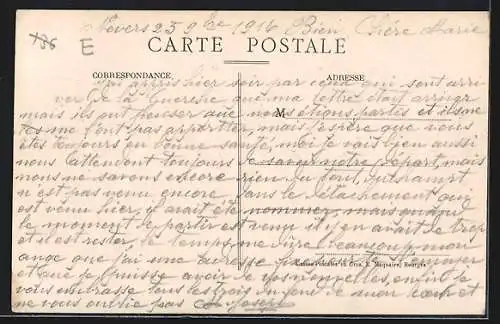 Nevers 25 9bre 1914 Bien Chère Marie
786
E
CARTE POSTALE
CORRESPONDANCE
ADRESSE
J'ai appris hier soir par ceux qui sont arri
ver de la Guerche que ma lettre était arriver
M
mais ils ont penser que nous étions partis et ils
ne me l'ont pas apporter, mais j'espère que vous
êtes toujours en bonne santé, moi je vais bien aussi
nous attendons toujours notre départ, mais
nous ne savons encore rien du tout,
n'est pas venu encore dans le détachement qui
est venu hier, il avait été nommer, mais quand
le moment de partir est venu il y en avait de trop
et il est rester, le temps me dure beaucoup mon
ange que j'ai une adresse
et que je puisse avoir de vos nouvelles, enfin je
vous embrasse tous les trois du fond de mon cœur et
ne vous oublie pas Joseph